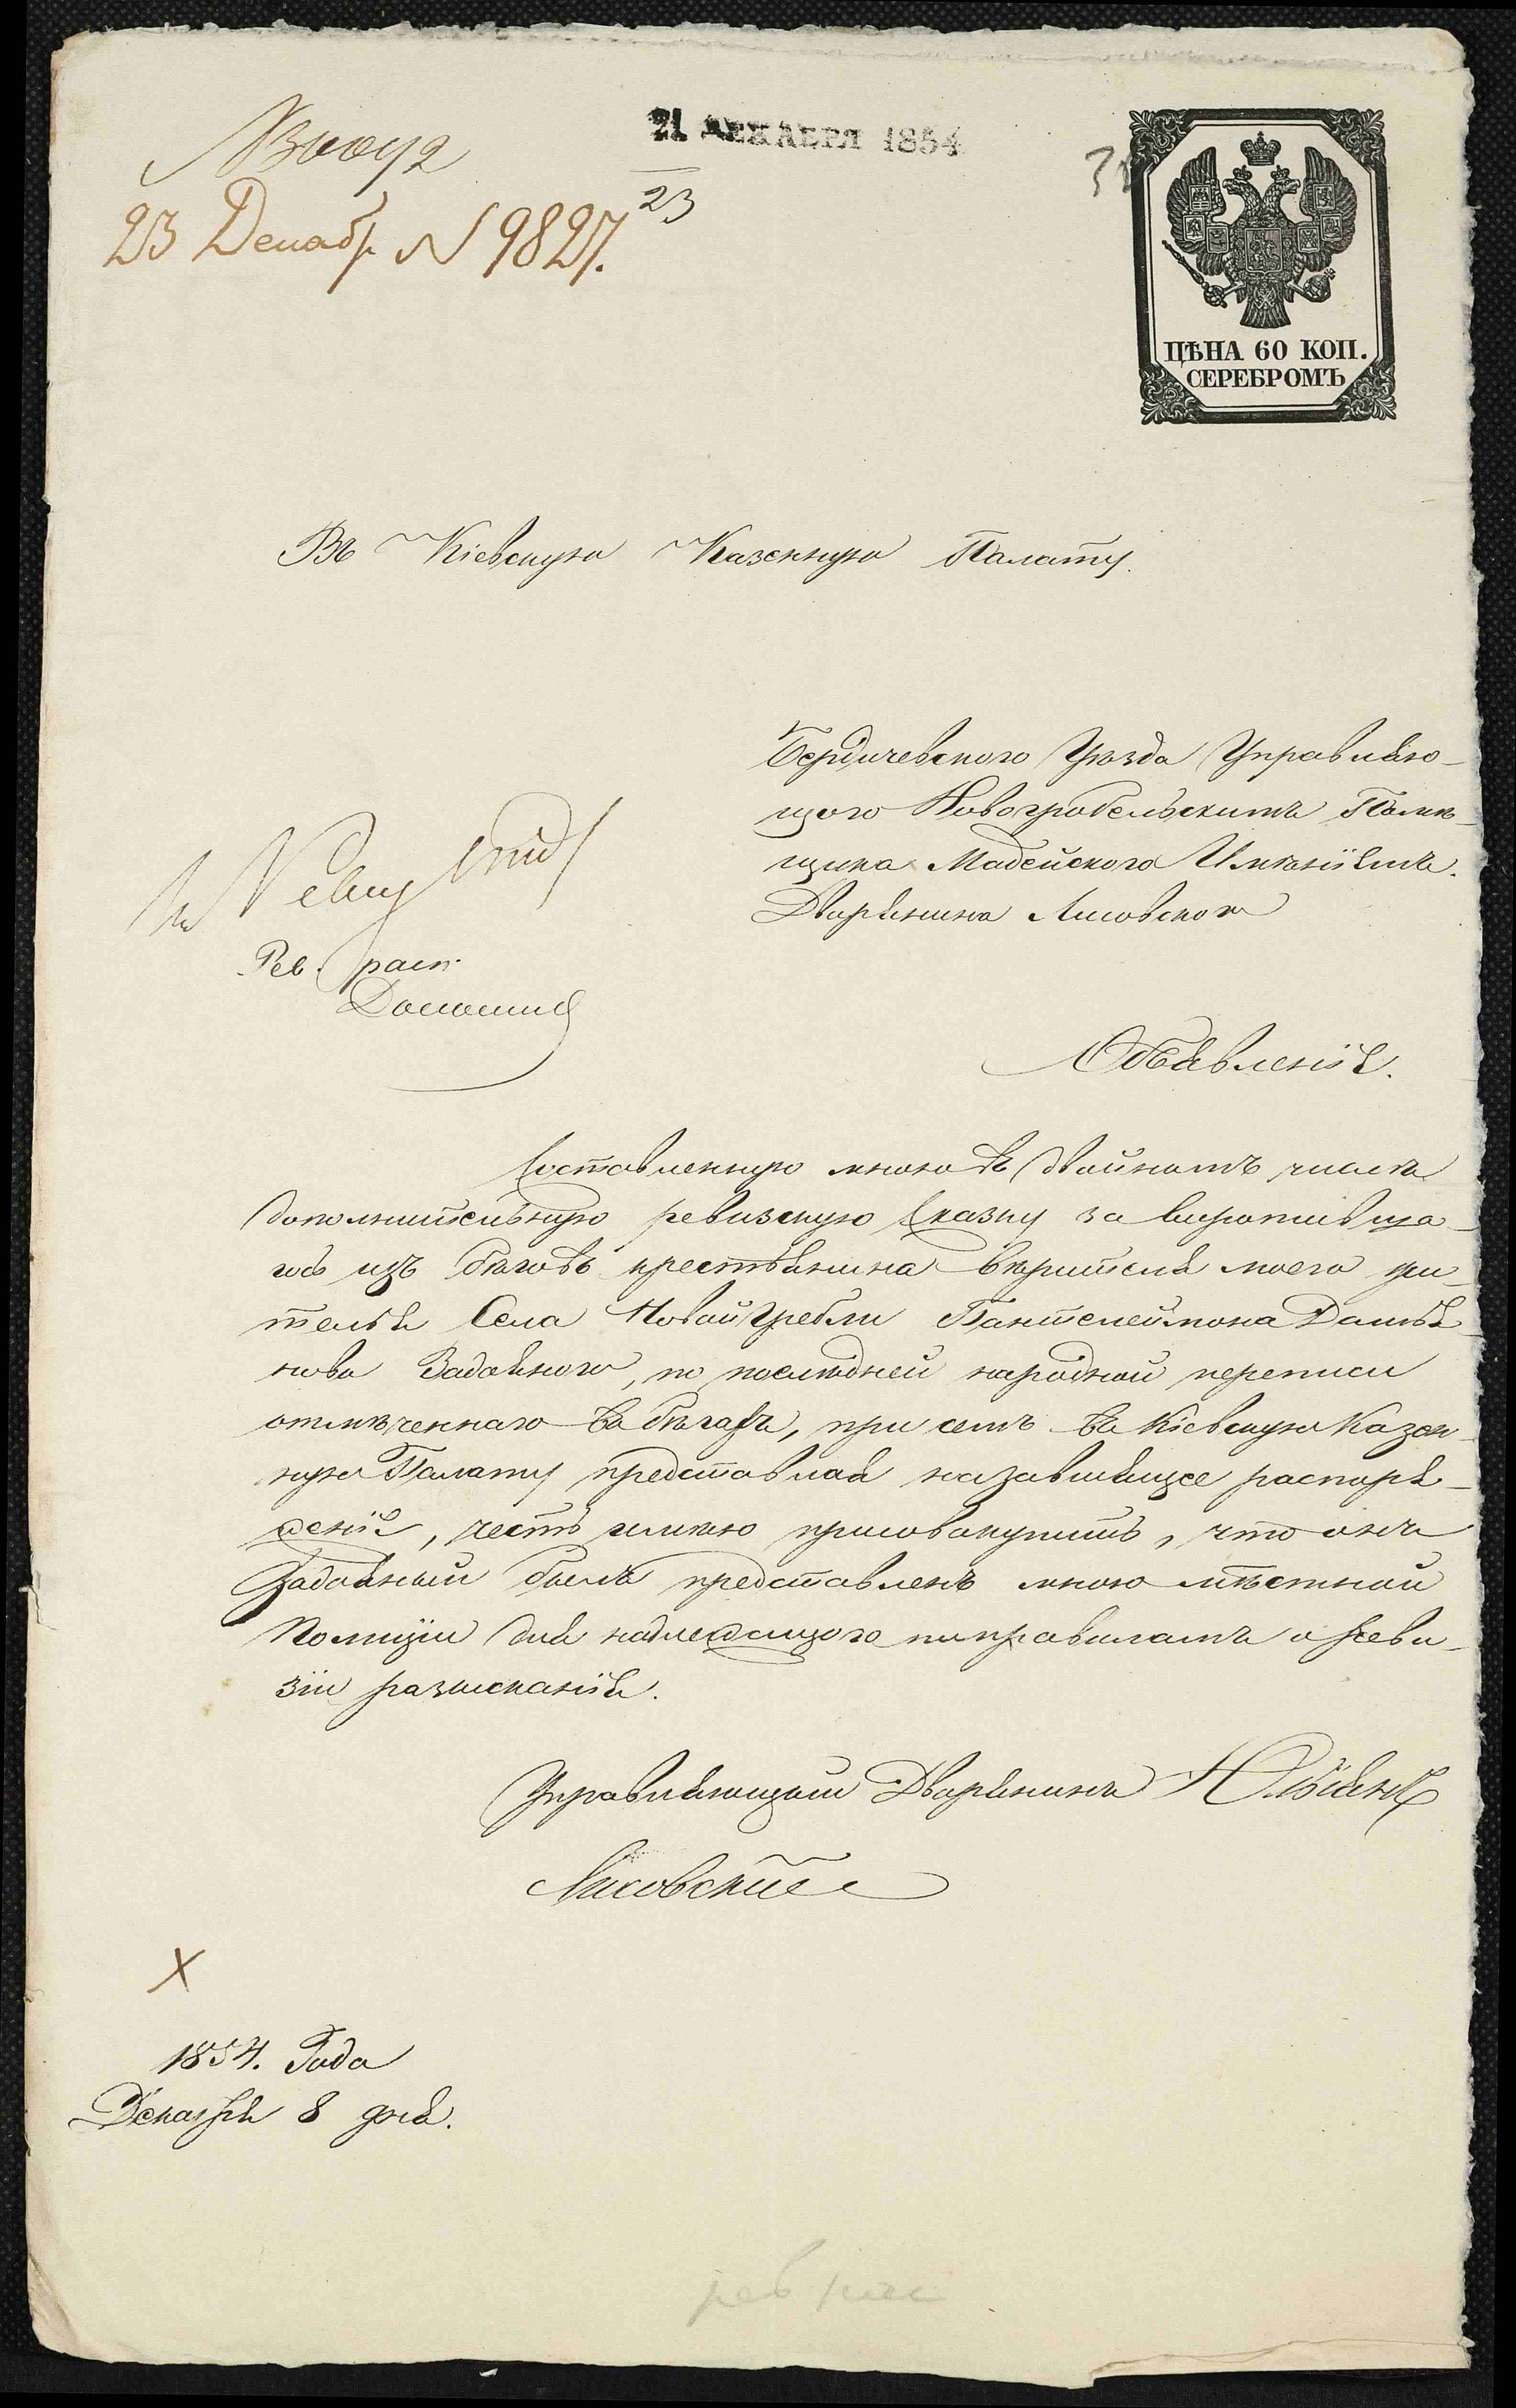 21 ДЕКАБРЯ 1854
23
23 Декабр N 9827.
ЦѢНА 60 КОП.
СЕРЕБРОМЪ
Въ Кіевскую Казенную Палату.
Бердичевского Уѣзда Управляю-
щого Новогребельскимъ Помѣ-
щика Мадейского Имѣніемъ.
Дворянина Лисовского
Рев. расп.
Объявленіе.
Составленную мною въ двойномъ числѣ
дополнительную ревизскую сказку за возротивша-
гось изъ бѣговъ крестьянина вѣрителя моего жи-
теля Села Новой Гребли Пантелеймона Демья-
нова Задояного, по послѣдней народной переписи
отмѣченнаго въ бѣгахъ, при семъ въ Кіевскую Казен-
ную Палату представляя на зависящее распоря-
женіе, честь имѣю присовокупить, что онъ
Задояный былъ представленъ мною мѣстной
Полиціи для надлежащого по правиламъ о реви-
зіи розысканія.
Управляющій Дворянинъ Юліянъ
Лисовскій
X
1854. Года
Декабря 8 дня.